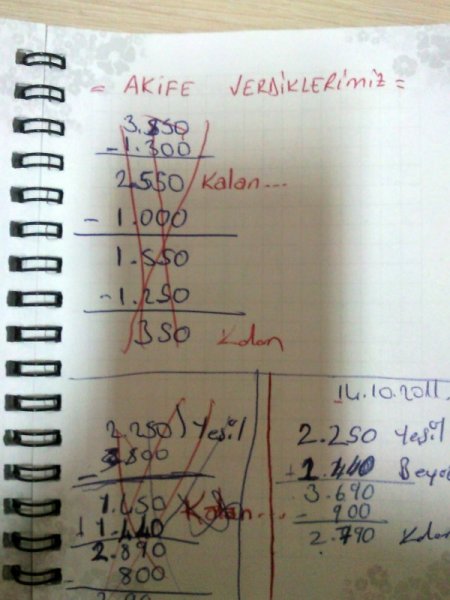 = AKİFE VERDİKLERİMİZ =
3.850
- 1.300
2.550 Kalan...
- 1.000
1.550
- 1.250
350 Kalan
2.250 Yeşil
- 800
1.450 Kalan...
+ 1.440
2.890
- 800
14.10.2011
2.250 Yeşil
+ 1.440
3.690
- 900
2.790 Kalan